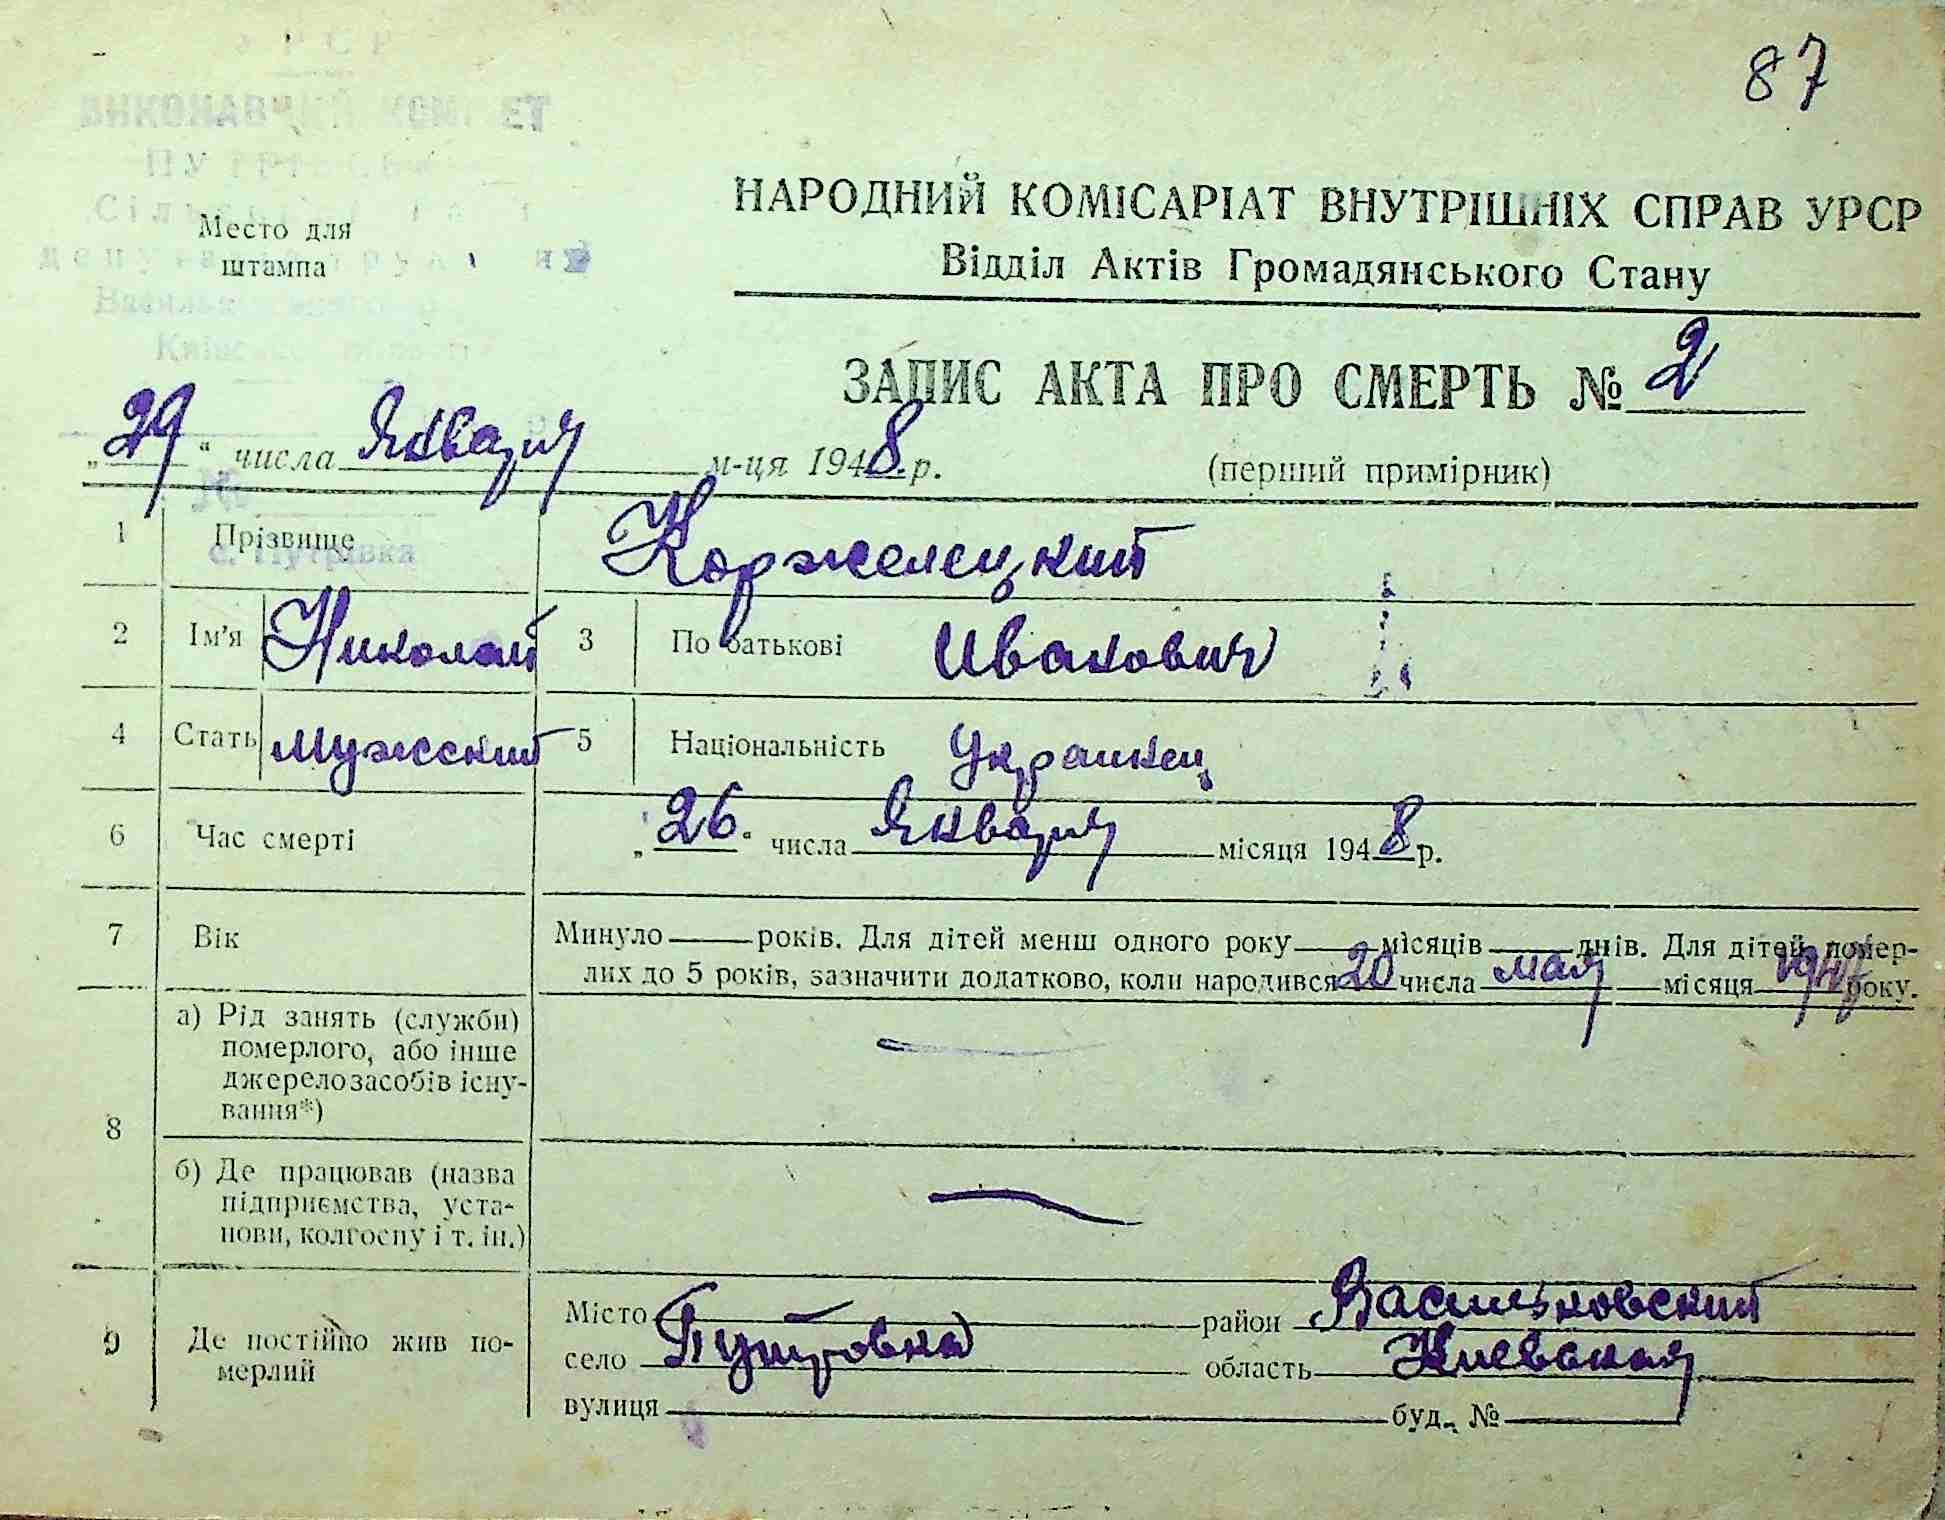 87
УРСР
ВИКОНАВЧИЙ КОМІТЕТ
Сільської
Место для
штампа
НАРОДНИЙ КОМІСАРІАТ ВНУТРІШНІХ СПРАВ УРСР
Відділ Актів Громадянського Стану
ЗАПИС АКТА ПРО СМЕРТЬ № 2
„29“ числа Января м-ця 1948 р.
(перший примірник)
№
с. Путрівка
1 Прізвище Коржелецкий
2 Ім'я Николай 3 По батькові Иванович
4 Стать мужский 5 Національність Украинец
6 Час смерті „26. числа Января місяця 1948 р.
7 Вік Минуло — років. Для дітей менш одного року — місяців — днів. Для дітей, помер-
лих до 5 років, зазначити додатково, коли народився 20 числа мая місяця 1947 року.
8 а) Рід занять (служби)
померлого, або інше
джерело засобів існу-
вання*) —
б) Де працював (назва
підприємства, уста-
нови, колгоспу і т. ін.) —
9 Де постійно жив по-
мерлий
Місто район Васильковский
село Путровка область Киевская
вулиця буд. №